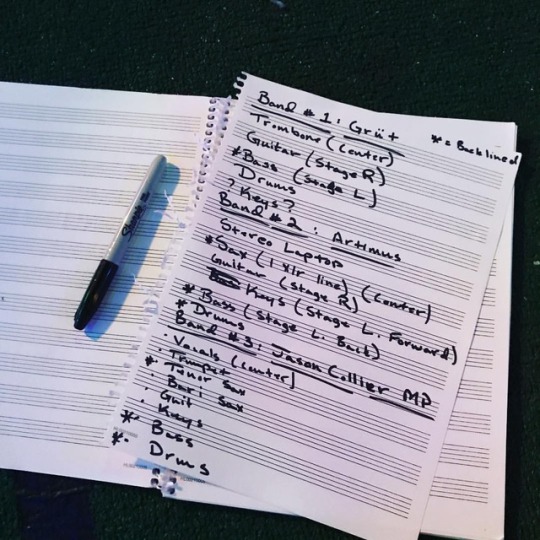 Band # 1: Grüt
* = Backlined
Trombone (Center)
Guitar (Stage R)
*Bass (Stage L)
Drums
?Keys?
Band # 2: Artimus
Stereo Laptop
*Sax (1 xlr line) (Center)
Guitar (Stage R)
Keys (Stage L. Forward)
* Bass (Stage L. Back)
*Drums
Band # 3: Jason Collier MP
· Vocals (Center)
· Trumpet
*· Tenor Sax
· Bari Sax
· Guit
· Keys
*· Bass
*· Drms
Sharpie